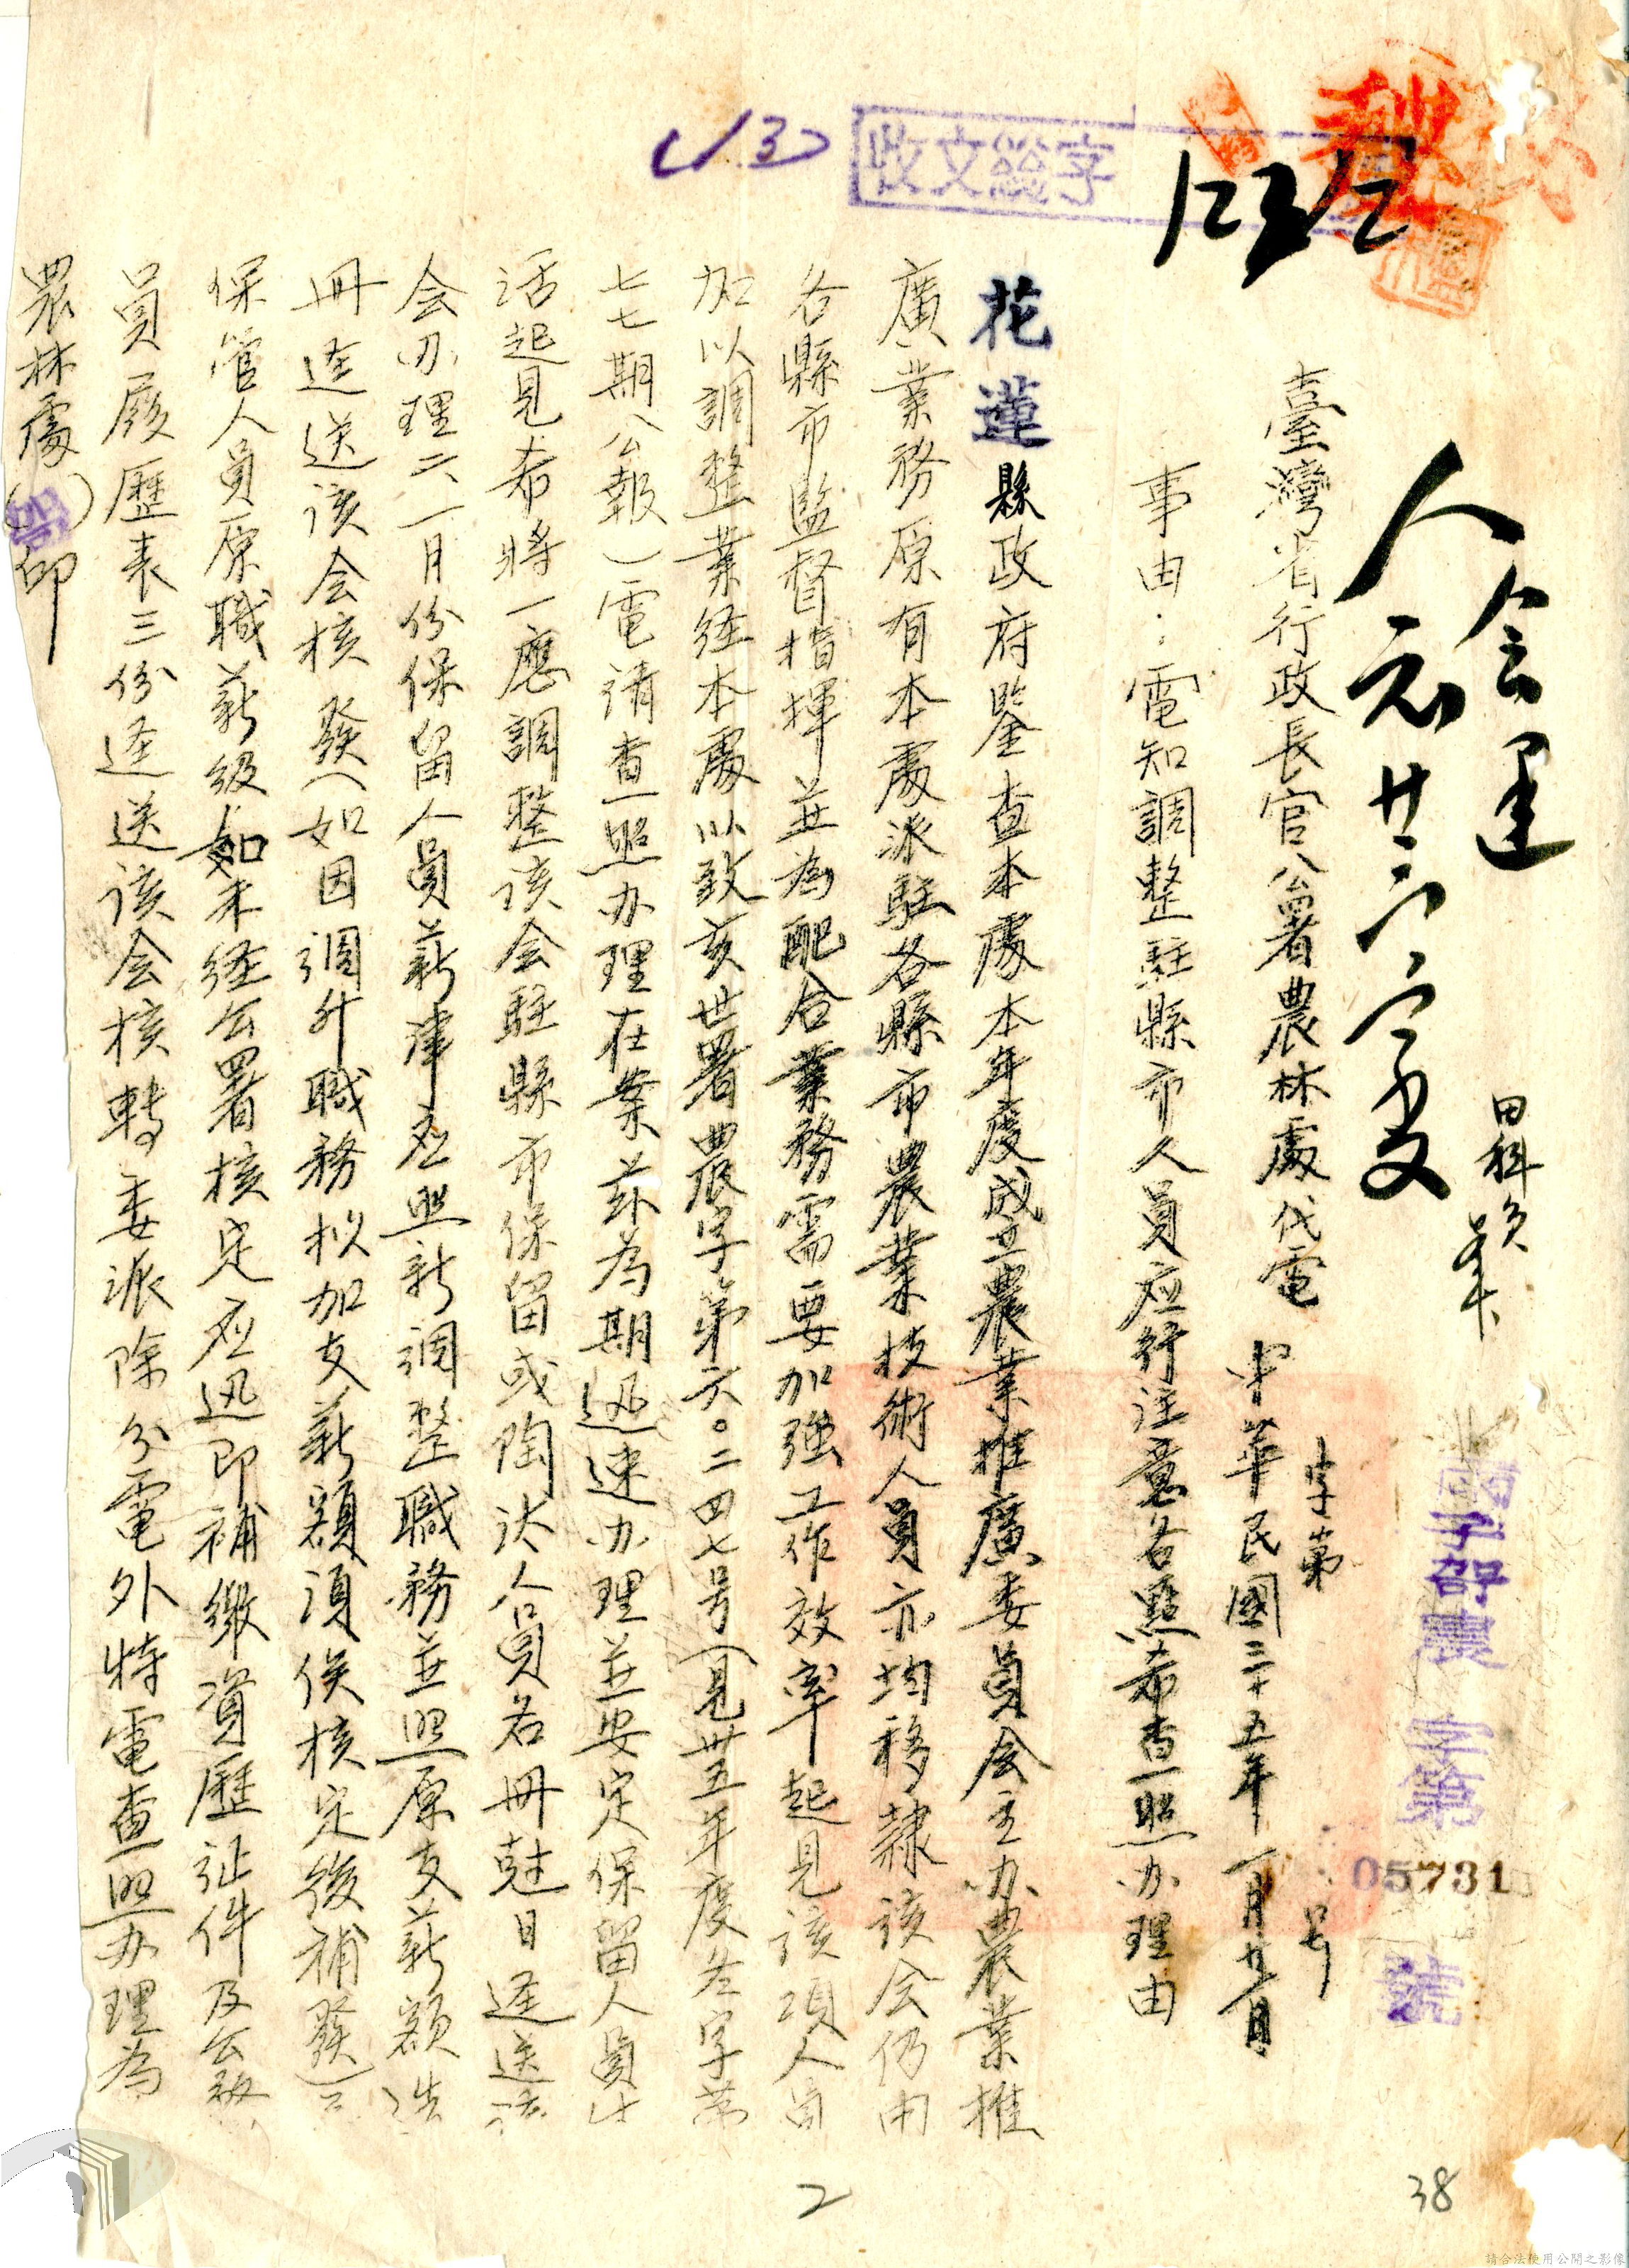 收文總字
會建
人元廿六
田科
國子部農 字第05731號
臺灣省行政長官公署農林處代電 字第 号
中華民國三十五年一月廿一日
事由：電知調整駐縣市人員应行注意各點希查照办理由
花蓮縣政府鑒查本處本年度成立農業推廣委員会主办農業推
廣業務原有本處派駐各縣市農業技術人員亦均移隸該会仍由
各縣市監督指揮並為配合業務需要加強工作效率起見該項人員
加以調整業经本處以致亥世署農字第六〇二四七号（見卅五年度冬字第
七七期公報）電请查照办理在案茲為期迅速办理並安定保留人員生
活起見希將一應調整該会駐縣市保留或淘汰人員名冊尅日逕送該
会办理二月份保留人員薪津应照新調整職務並照原支薪額造
冊逕送該会核發（如因調升職務拟加支薪額須俟核定後補發）
保管人員原職薪级如未经公署核定应迅即補繳資歷証件及公教
員履歷表三份逕送該会核轉委派除分電外特電查照办理為
農林處（ ）印
2
38
請合法使用公開之影像